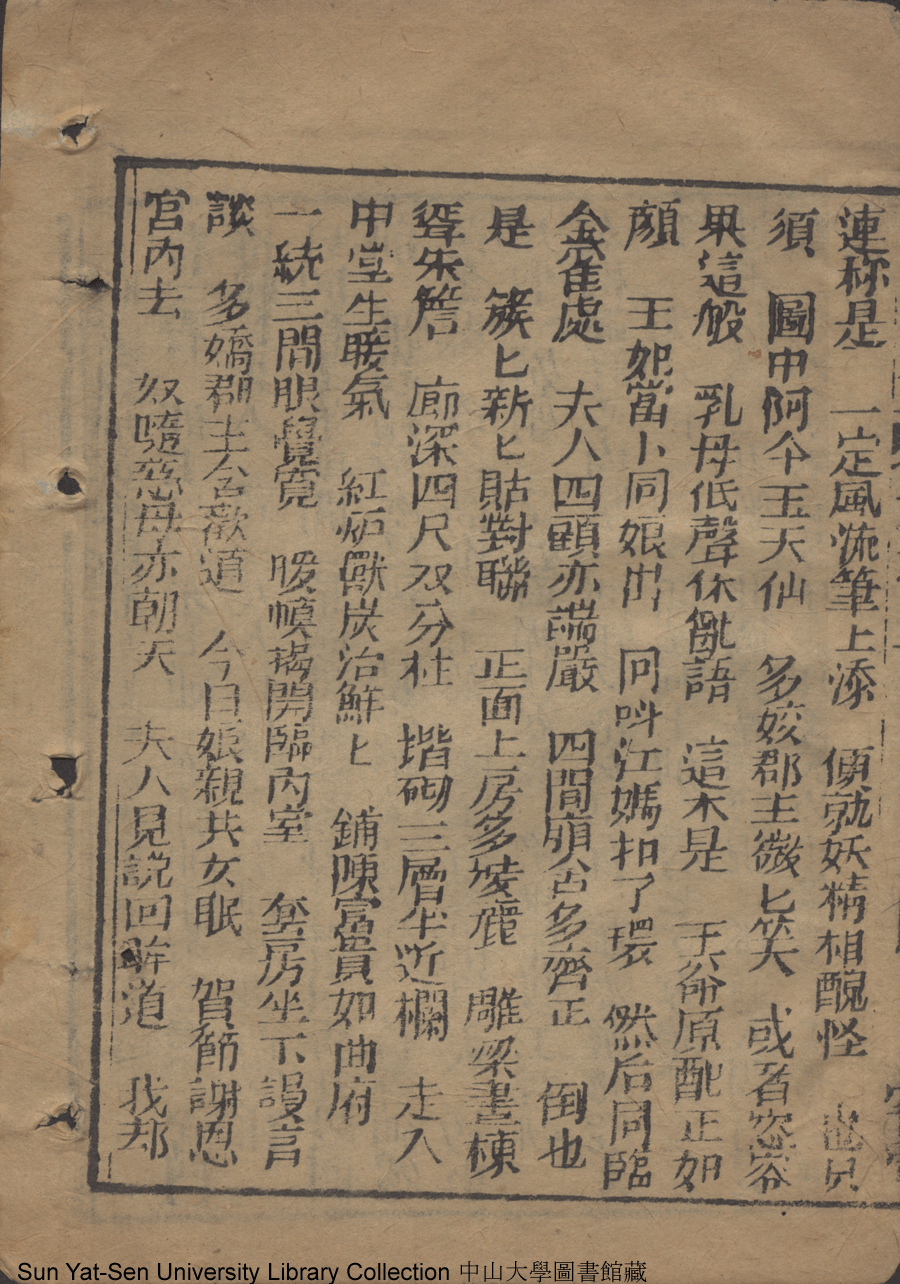 連称是 一定風流筆上添 傾就妖精相醜怪 豈見
須 圖中阿今玉天仙 多姣郡主微匕笑 或者恣容
果這般 乳母低聲休亂語 這木是 王爺原配正如
顔 王妃當卜同娘出 同呌江媽扣了環 然后同臨
金雀處 夫人四顧亦端嚴 四間 多齊正 倒也
是 簇匕新匕貼對聯 正面上房多 鹿 雕梁畫棟
聳朱簷 廊深四尺双分柱 堦砌三層半近欄 走入
中堂生暖氣 紅炉獸炭治鮮匕 鋪陳富貴如曲府
一統三間眼覺寛 暖幙揭開臨內室 套房坐下謾言
談 多嬌郡主含歡道 今日娘親共女眠 賀節謝恩
宮內去 奴隨慈母亦朝天 夫人見説回眸道 我却
Sun Yat-Sen University Library Collection 中山大學圖書館藏